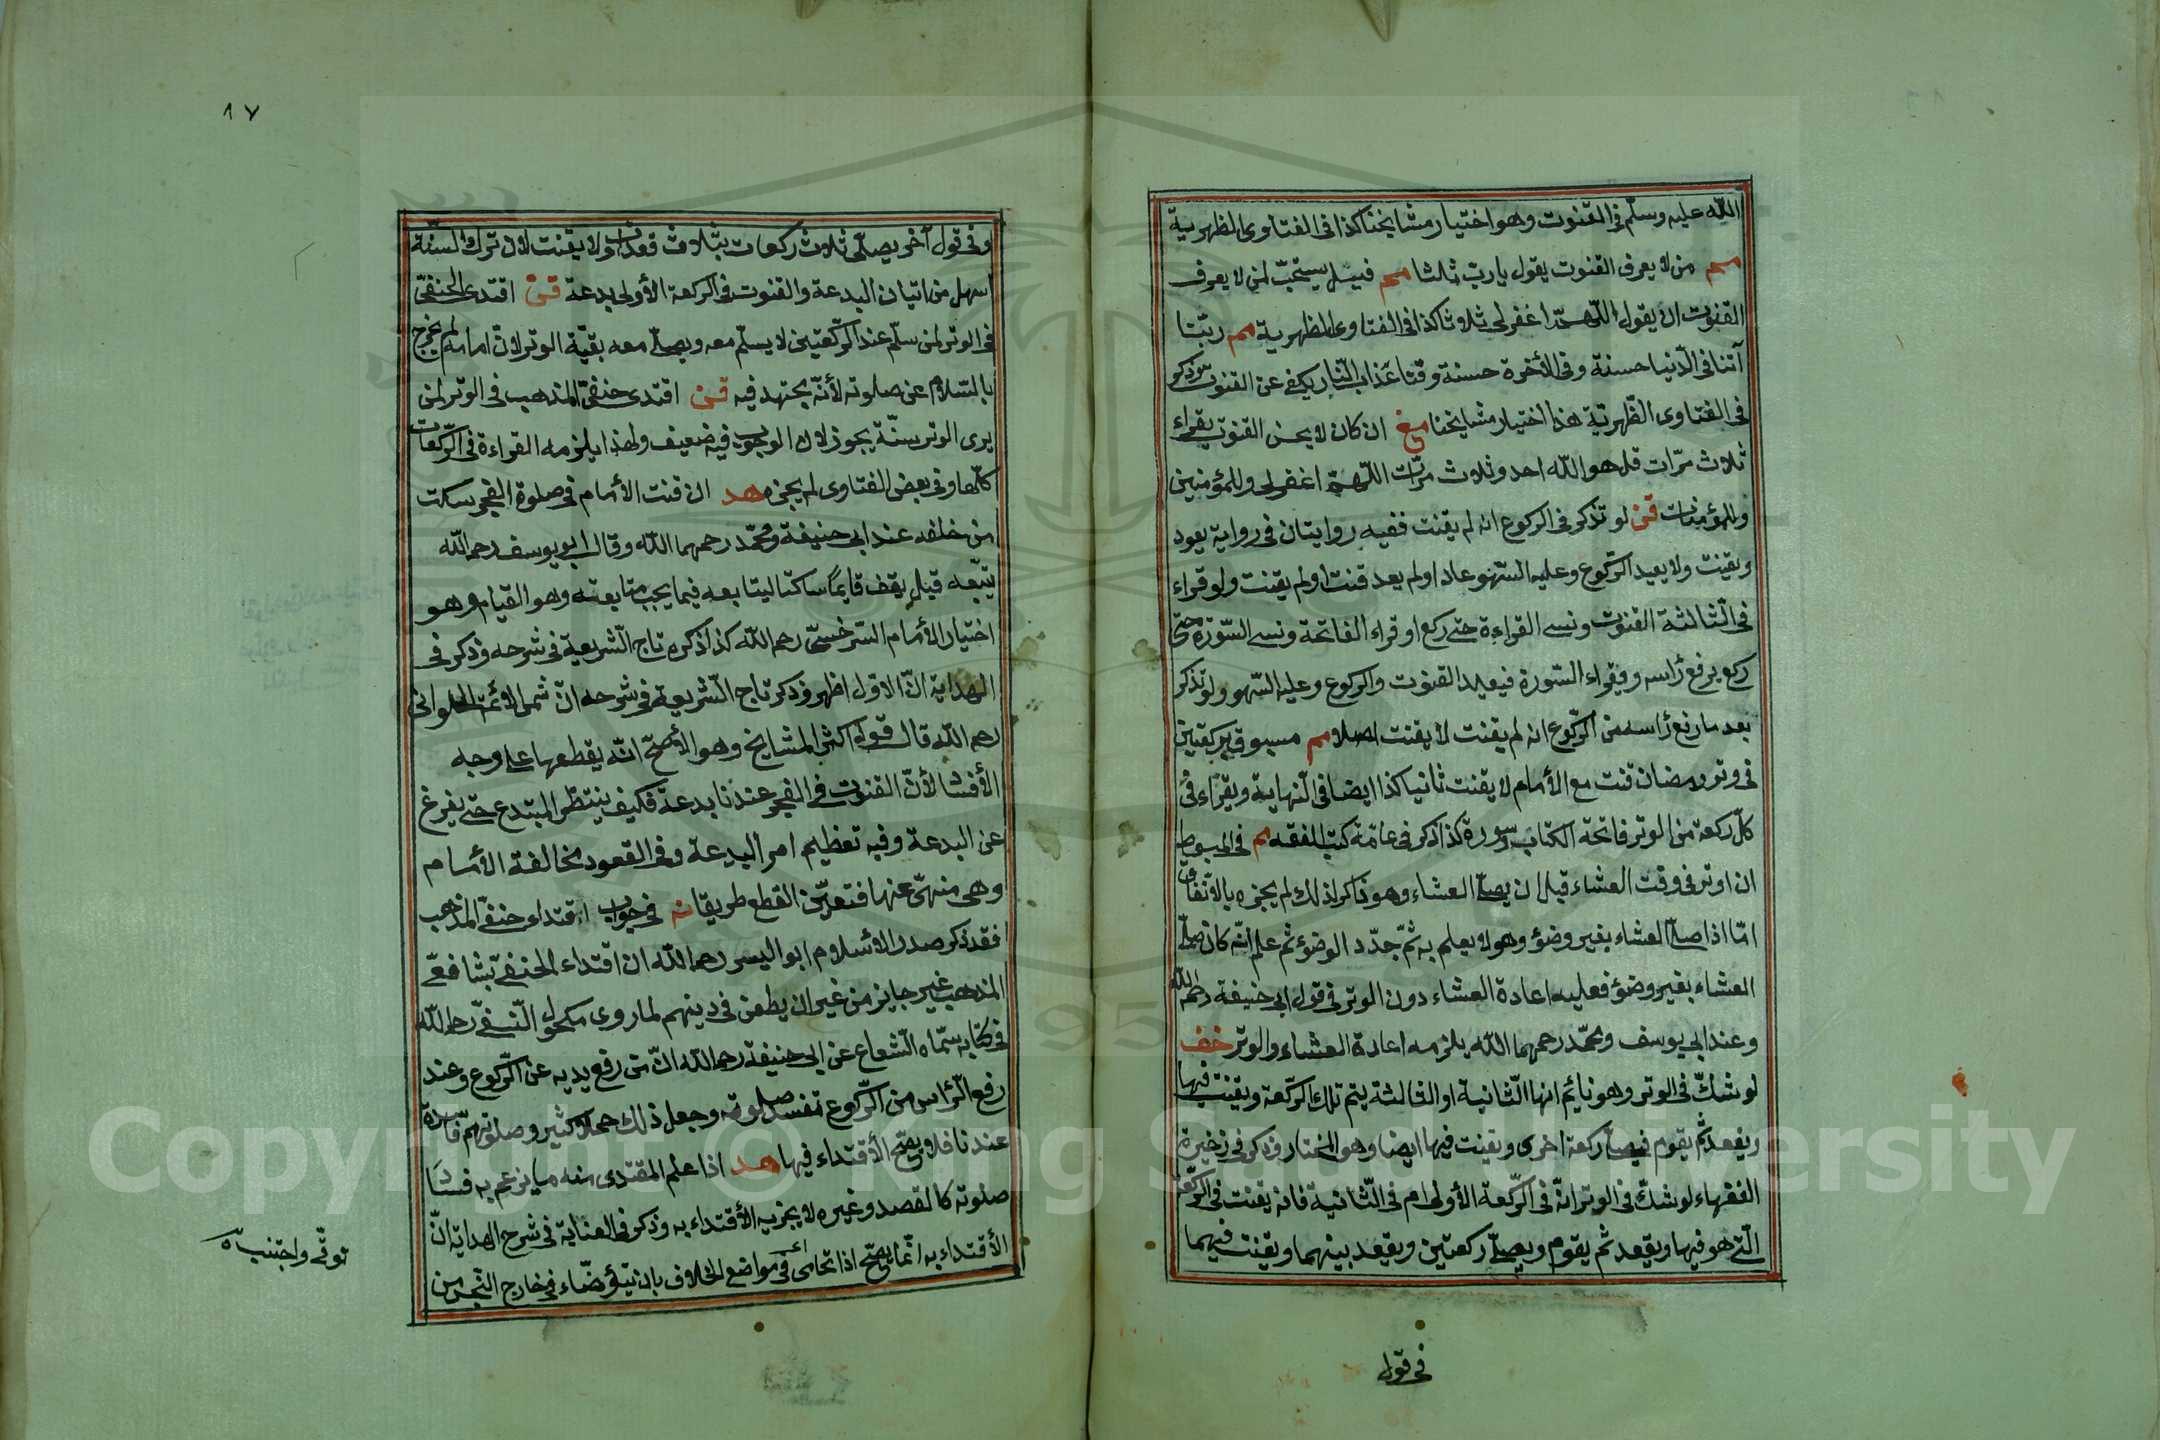 الله عليه وسلم في القنوت وهو اختيار مشايخنا كذا في الفتاوى الظهرية
مم من لا يعرف القنوت يقول يا رب ثلثا مم قيل يستحب لمن لا يعرف
القنوت ان يقول اللهم اغفر لي ثلاثا كذا في الفتاوى المظهرية مم ربنا
آتنا في الدنيا حسنة وفي الأخرة حسنة وقنا عذاب النار يكفي عن القنوت وذكر
في الفتاوى الظهرية هذا اختيار مشايخنا مع ان كان لا يحسن القنوت يقراء
ثلاث مرات قل هو الله احد وثلاث مرات اللهم اغفر لي وللمؤمنين
وللمؤمنات قن لو تذكر في الركوع انه لم يقنت ففيه روايتان في رواية يعود
ويقنت ولا يعيد الركوع وعليه السهو عاد او لم يعد قنت او لم يقنت ولو قراء
في الثالثة القنوت ونسي القراءة حتى ركع او قراء الفاتحة ونسي السورة حتى
ركع يرفع رأسه ويقراء السورة فيعيد القنوت والركوع وعليه السهو ولو تذكر
بعد ما رفع رأسه من الركوع انه لم يقنت لا يقنت اصلا مم مسبوق بركعتين
في وتر رمضان قنت مع الأمام لا يقنت ثانيا كذا ايضا في النهاية ويقراء في
كل ركعة من الوتر فاتحة الكتاب وسورة كذا ذكر في عامة كتب الفقه مم في المبسوط
ان اوتر في وقت العشاء قبل ان يصلي العشاء وهو ذاكر لذلك لم يجزه بالاتفاق
امّا اذا صلى العشاء بغير وضؤ وهو لا يعلم به ثم جدّد الوضوء ثم علم انه كان صلى
العشاء بغير وضؤ فعليه اعادة العشاء دون الوتر في قول ابي حنيفة رحمه الله
وعند ابي يوسف ومحمد رحمهما الله يلزمه اعادة العشاء والوتر خف
لو شك في الوتر وهو قايم انها الثانية او الثالثة يتم تلك الركعة ويقنت فيها
ويقعد ثم يقوم فيصلي ركعة اخرى ويقنت فيها ايضا وهو المختار وذكر في ذخيرة
الفقهاء لو شك في الوتر انه في الركعة الأولى ام في الثانية فانه يقنت في الركعة
التي هو فيها ويقعد ثم يقوم ويصلي ركعتين ويقعد بينهما ويقنت فيهما
في قول
٨٧
وفي قول آخر يصلي ثلاث ركعات بثلاث قعدات ولا يقنت لان ترك السنة
اسهل من اتيان البدعة والقنوت في الركعة الأولى بدعة قن اقتدى الحنفي
في الوتر لمن سلم عند الركعتين لا يسلم معه ويصلي معه بقية الوتر لان امامه لم يخرج
بالسلام عن صلوته لأنه يجتهد فيه قن اقتدى حنفي المذهب في الوتر لمن
يرى الوتر سنة يجوز لان الوجوب فيه ضعيف ولهذا يلزمه القراءة في الركعات
كلها وفي بعض الفتاوى لم يجزه هد ان قنت الأمام في صلوة الفجر سكت
من خلفه عند ابي حنيفة ومحمد رحمهما الله وقال ابو يوسف رحمه الله
يتبعه قيل يقف قايما ساكتا ليتابعه فيما يجب متابعته وهو القيام وهو
اختيار الأمام السرخسي رحمه الله كذا ذكره تاج الشريعة في شرحه وذكر في
الهداية ان الاول اظهر وذكر تاج الشريعة في شرحه ان شمس الائمة الحلواني
رحمه الله قال قول اكثر المشايخ وهو الأصح انه يقطعها على وجه
الأفشا لأن القنوت في الفجر عندنا بدعة فكيف ينتظر المبتدع حتى يفرغ
عن البدعة وفيه تعظيم امر البدعة وفي القعود مخالفة الأمام
وهي منهي عنها فتعين القطع طريقا نه في جواب اقتداء حنفي المذهب
فقد ذكر صدر الاسلام ابو اليسر رحمه الله ان اقتداء الحنفي بشافعي
المذهب غير جايز من غير ان يطعن في دينهم لما روى مكحول النسفي رحمه الله
في كتابه سماه الشعاع عن ابي حنيفة رحمه الله ان من رفع يديه عن الركوع وعند
رفع الرأس من الركوع تفسد صلوته وجعل ذلك عملا كثير وصلوتهم فاسدة
عندنا فلا يصح الأقتداء فيها هد اذا علم المقتدى منه ما يزعم به فساد
صلوته كالفصد وغيره لا يجزيه الأقتداء به وذكر في العناية في شرح الهداية ان
الأقتداء به انما يصح اذا تحامى في مواضع الخلاف بان يتوضاء في خارج النجس من
توقي واجتنب
Copyright © King Saud University